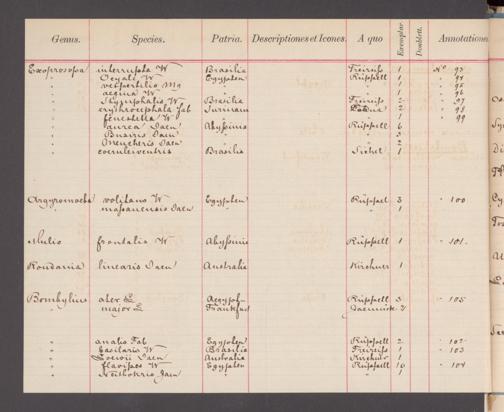 Genus. Species. Patria. Descriptiones et Icones. A quo Exemplar. Doublett. Annotatione
Exoprosopa interrupta W Brasilia Freireiss 1 No 93
" Ocyali W Egypten Rüppell 1 " 94
" vespertilio Mg " " 1 " 95
" aegina W " " 1 " 96
" Stymphalis W Brasilia Freireiss 2 " 97
" erythrocephala Fab Surinam 2 " 98
" fenestella W " 1 " 99
" Jaen Abyssinia Rüppell 6
" Busiris Jaen " 3
" Jaen " 2
" coeruleiventris Brasilia 1
Argyromoeba volitans W Egypten Rüppell 3 " 100
" massauensis Jaen " " 1
Mulio frontalis W Abyssinia Rüppell 1 " 101.
linearis Jaen Australia Kirchner 1
Bombylius ater Aegypt. Rüppell 3 " 105
" major Frankfurt
" analis Fab Egypten Rüppell 2 " 102
" basilaris W Brasilia Freireiss 1 " 103
" Jaen Australia Kirchner 1
" flavipes W Egypten Rüppell 10 " 104
" Jaen " 1